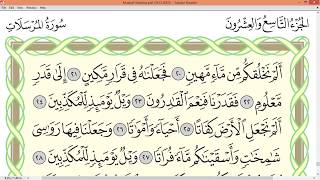 الجُزْءُ التَّاسِعُ وَالعِشْرُونَ
سُورَةُ المُرْسَلَات
أَلَمْ نَخْلُقكُّم مِّن مَّآءٍ مَّهِينٍ ٢٠ فَجَعَلْنَٰهُ فِى قَرَارٍ مَّكِينٍ ٢١ إِلَىٰ قَدَرٍ
مَّعْلُومٍ ٢٢ فَقَدَرْنَا فَنِعْمَ ٱلْقَٰدِرُونَ ٢٣ وَيْلٌ يَوْمَئِذٍ لِّلْمُكَذِّبِينَ ٢٤
أَلَمْ نَجْعَلِ ٱلْأَرْضَ كِفَاتًا ٢٥ أَحْيَآءً وَأَمْوَٰتًا ٢٦ وَجَعَلْنَا فِيهَا رَوَٰسِىَ
شَٰمِخَٰتٍ وَأَسْقَيْنَٰكُم مَّآءً فُرَاتًا ٢٧ وَيْلٌ يَوْمَئِذٍ لِّلْمُكَذِّبِينَ ٢٨